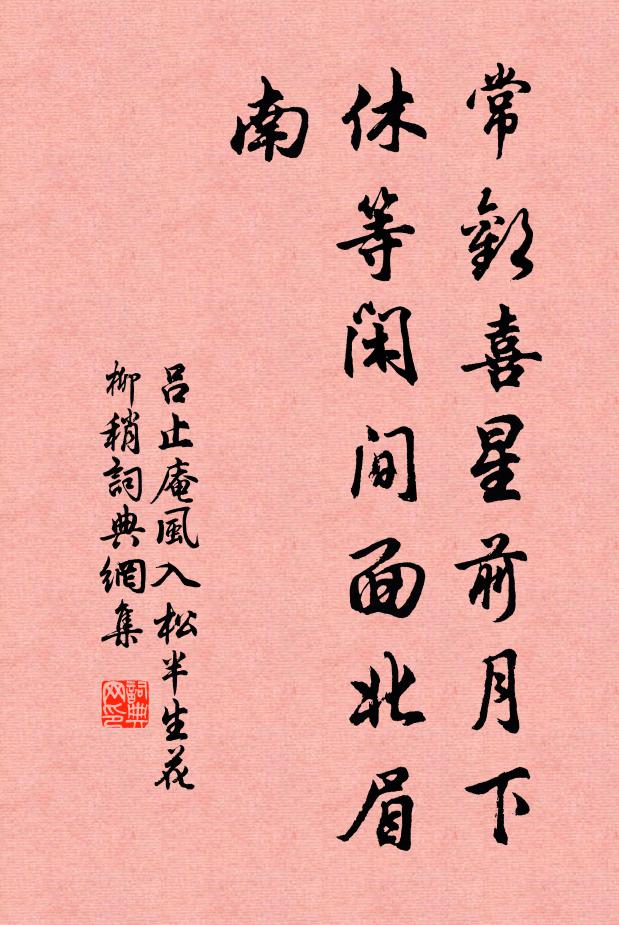 常歡喜星前月下
休等閑間面北眉
南
呂止庵風入松半生花
柳稍詞典網集
詞典
网印